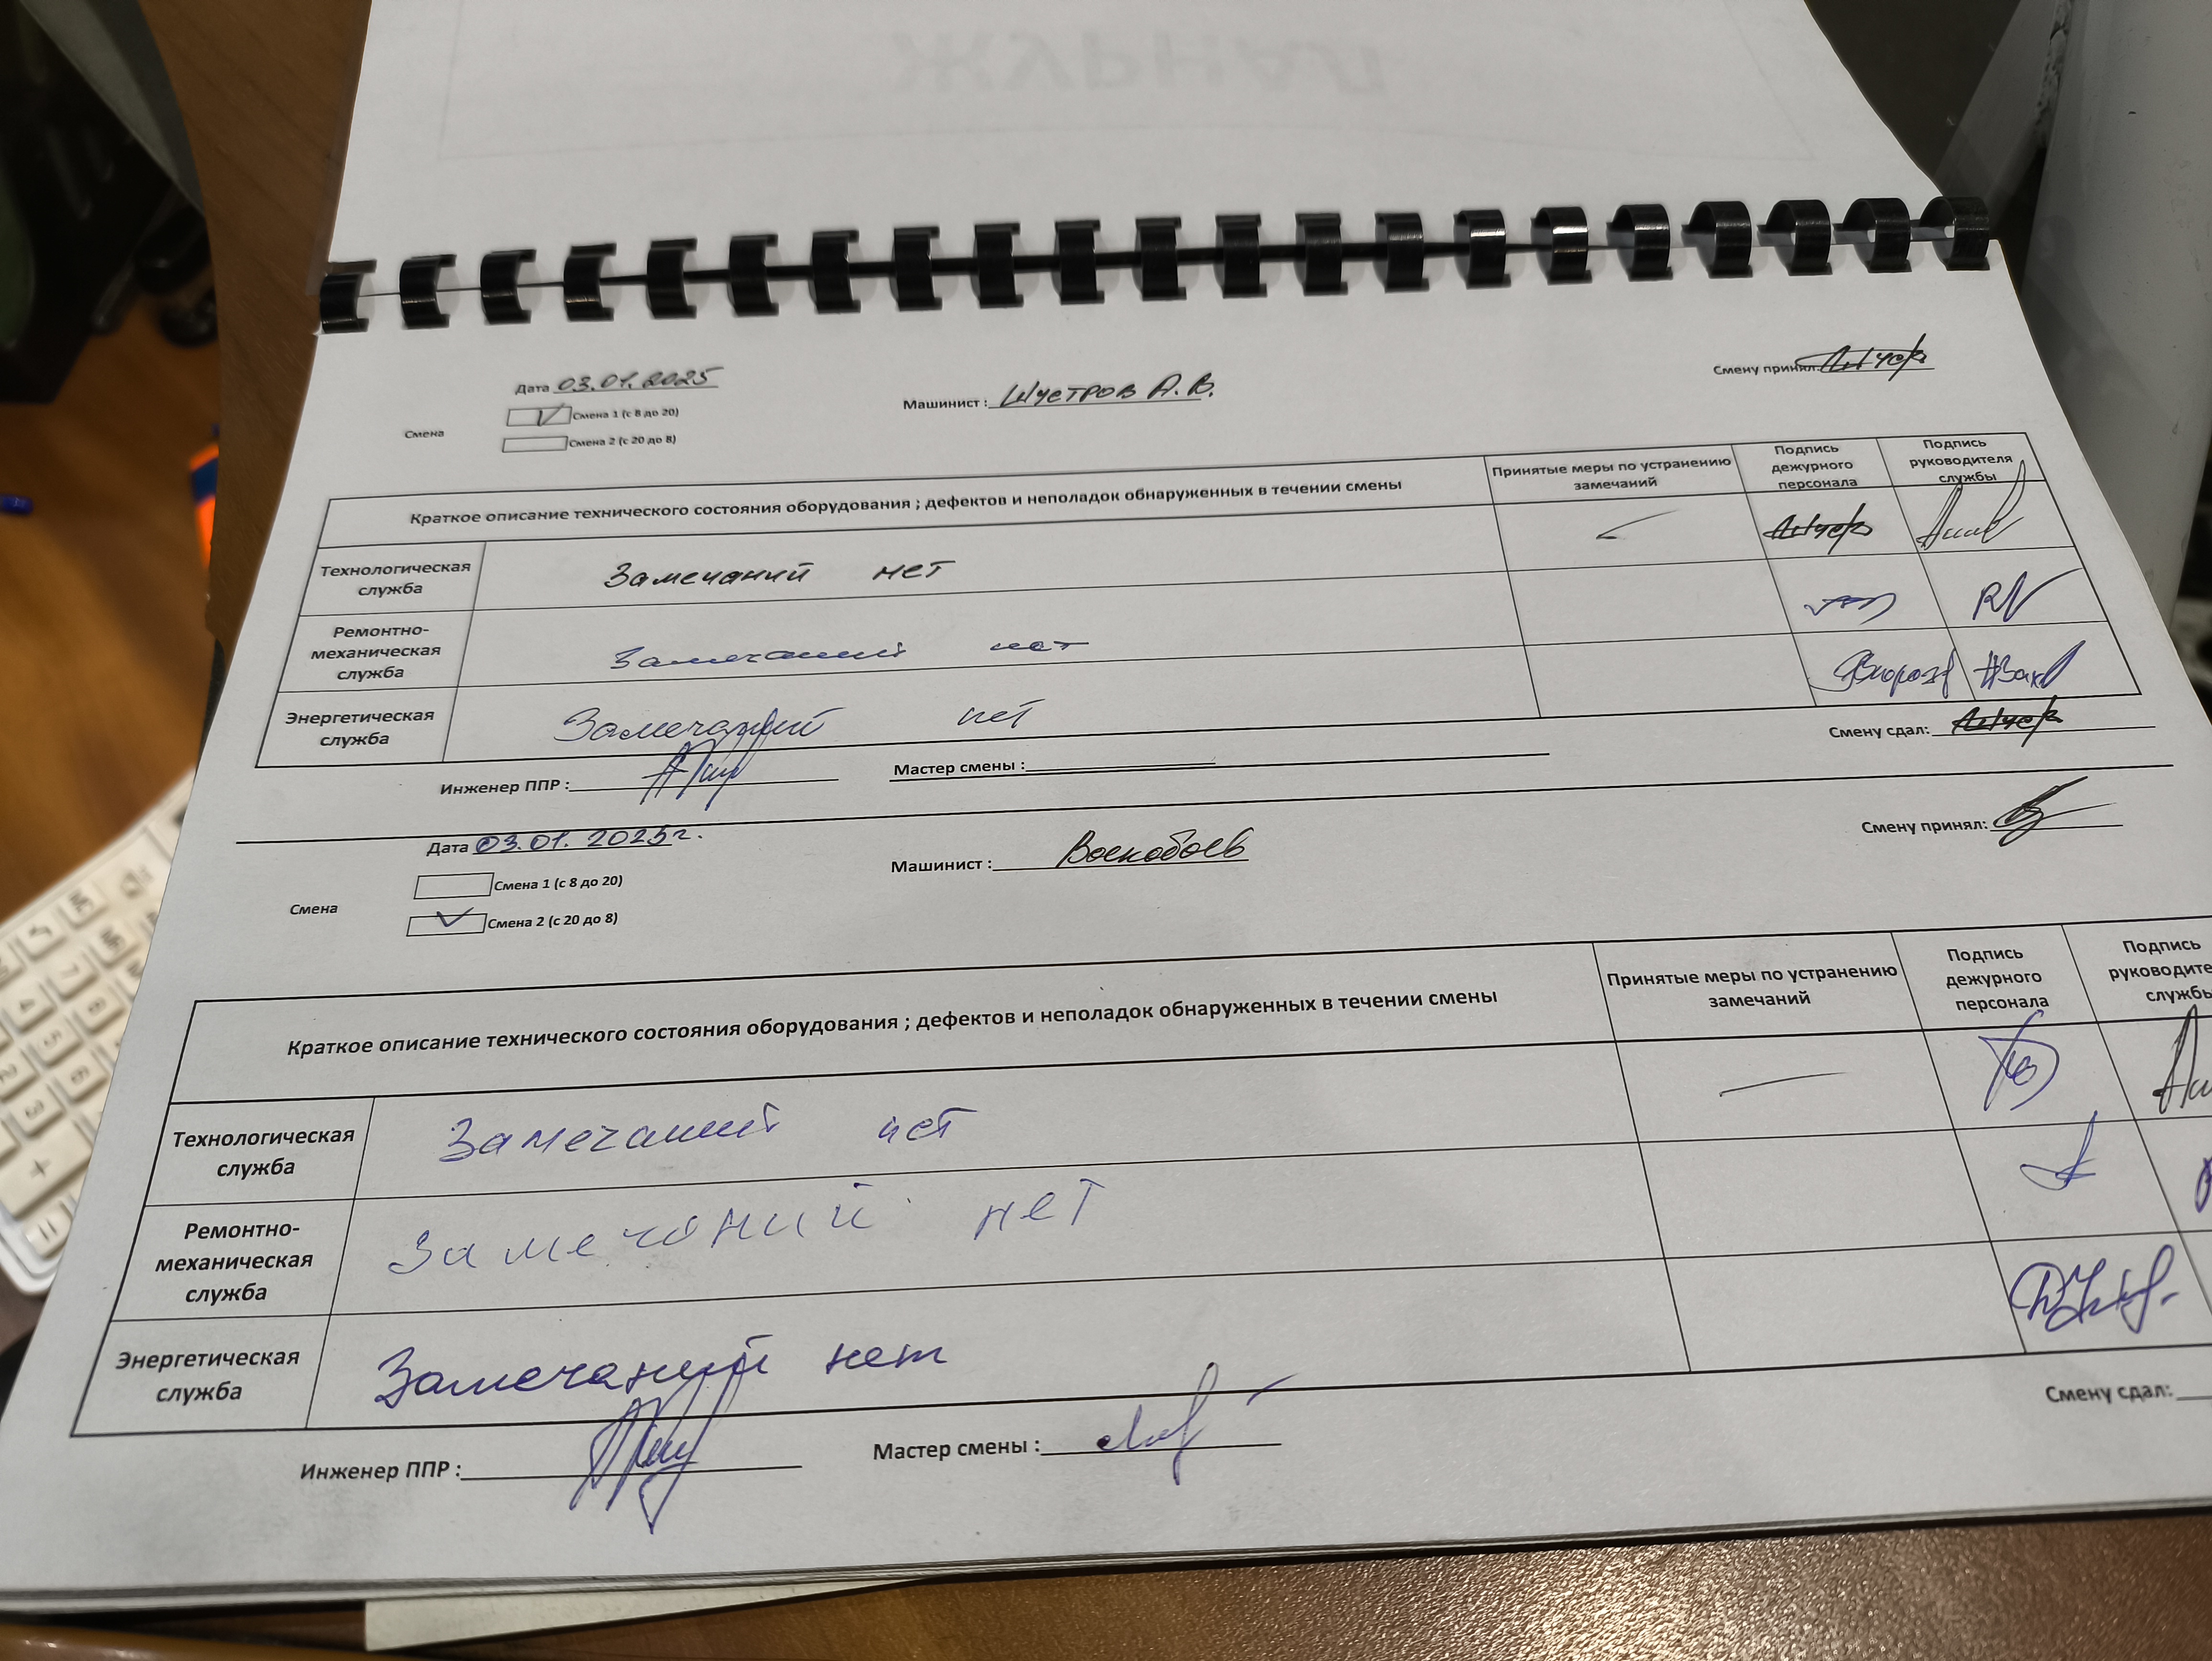 ЖУРНАЛ
Дата 03.01.2025
Машинист : Шустров А.В.
Смену принял:
Смена
Смена 1 (с 8 до 20)
Смена 2 (с 20 до 8)
Краткое описание технического состояния оборудования ; дефектов и неполадок обнаруженных в течении смены
Принятые меры по устранению замечаний
Подпись дежурного персонала
Подпись руководителя службы
Технологическая служба
Замечаний нет
Ремонтно-механическая служба
Замечаний нет
Энергетическая служба
Замечаний нет
Инженер ППР :
Мастер смены :
Смену сдал:
Дата 03.01.2025г.
Машинист : Воскобоев
Смену принял:
Смена
Смена 1 (с 8 до 20)
Смена 2 (с 20 до 8)
Краткое описание технического состояния оборудования ; дефектов и неполадок обнаруженных в течении смены
Принятые меры по устранению замечаний
Подпись дежурного персонала
Подпись руководите службы
Технологическая служба
Замечаний нет
Ремонтно-механическая служба
Замечаний нет
Энергетическая служба
Замечаний нет
Инженер ППР :
Мастер смены :
Смену сдал: